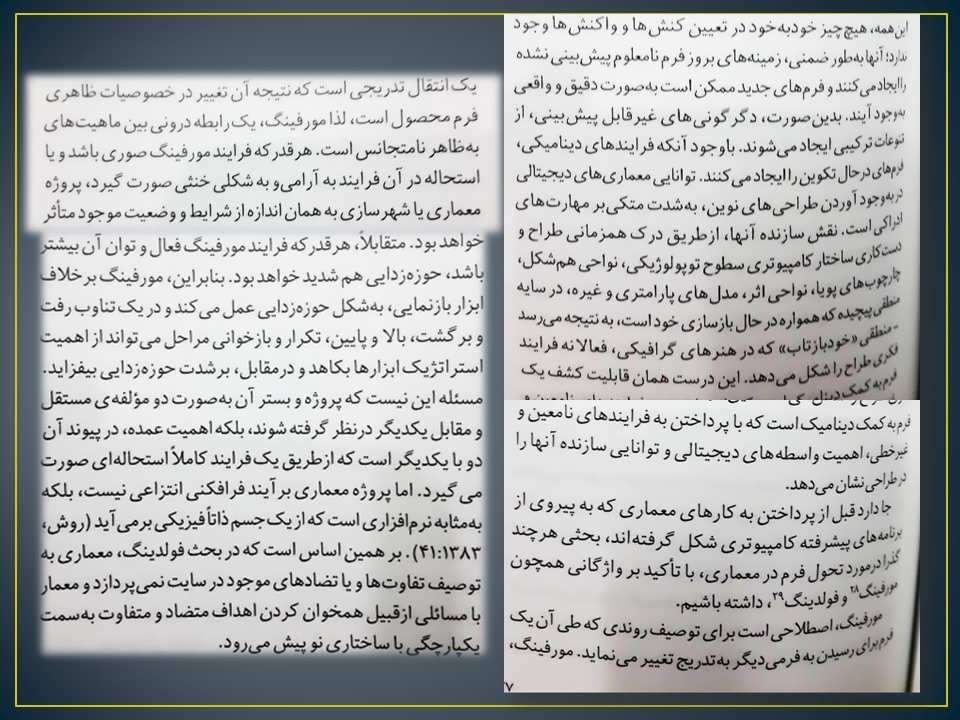 این همه، هیچ چیز خودبه‌خود در تعیین کنش‌ها و واکنش‌ها وجود
ندارد؛ آنها به‌طور ضمنی، زمینه‌های بروز فرم نامعلوم پیش‌بینی نشده
را ایجاد می‌کنند و فرم‌های جدید ممکن است به‌صورت دقیق و واقعی
به‌وجود آیند. بدین‌صورت، دگرگونی‌های غیرقابل پیش‌بینی، از
تنوعات ترکیبی ایجاد می‌شوند. باوجود آنکه فرایندهای دینامیکی،
فرم‌های درحال تکوین را ایجاد می‌کنند. توانایی معماری‌های دیجیتالی
در به‌وجود آوردن طراحی‌های نوین، به‌شدت متکی بر مهارت‌های
ادراکی است. نقش سازنده آنها، ازطریق درک همزمانی طراح و
دست‌کاری ساختار کامپیوتری سطوح توپولوژیکی، نواحی هم‌شکل،
چارچوب‌های پویا، نواحی اثر، مدل‌های پارامتری و غیره، در سایه
منطقی پیچیده که همواره در حال بازسازی خود است، به نتیجه می‌رسد
- منطقی «خودبازتاب» که در هنرهای گرافیکی، فعالانه فرایند
فکری طراح را شکل می‌دهد. این درست همان قابلیت کشف یک
فرم به کمک دینامیک است که با پرداختن به فرایندهای نامعین و
غیرخطی، اهمیت واسطه‌های دیجیتالی و توانایی سازنده آنها را
در طراحی نشان می‌دهد.
جا دارد قبل از پرداختن به کارهای معماری که به پیروی از
برنامه‌های پیشرفته کامپیوتری شکل گرفته‌اند، بحثی هرچند
گذرا درمورد تحول فرم در معماری، با تأکید بر واژگانی همچون
مورفینگ۲۸ و فولدینگ۲۹، داشته باشیم.
مورفینگ، اصطلاحی است برای توصیف روندی که طی آن یک
فرم برای رسیدن به فرمی دیگر به‌تدریج تغییر می‌نماید. مورفینگ،
۷
یک انتقال تدریجی است که نتیجه آن تغییر در خصوصیات ظاهری
فرم محصول است، لذا مورفینگ، یک رابطه درونی بین ماهیت‌های
به‌ظاهر نامتجانس است. هرقدر که فرایند مورفینگ صوری باشد و یا
استحاله در آن فرایند به آرامی و به شکلی خنثی صورت گیرد، پروژه
معماری یا شهرسازی به همان اندازه از شرایط و وضعیت موجود متأثر
خواهد بود. متقابلاً، هرقدر که فرایند مورفینگ فعال و توان آن بیشتر
باشد، حوزه‌زدایی هم شدید خواهد بود. بنابراین، مورفینگ برخلاف
ابزار بازنمایی، به‌شکل حوزه‌زدایی عمل می‌کند و در یک تناوب رفت
و برگشت، بالا و پایین، تکرار و بازخوانی مراحل می‌تواند از اهمیت
استراتژیک ابزارها بکاهد و درمقابل، برشدت حوزه‌زدایی بیفزاید.
مسئله این نیست که پروژه و بستر آن به‌صورت دو مؤلفه‌ی مستقل
و مقابل یکدیگر درنظر گرفته شوند، بلکه اهمیت عمده، در پیوند آن
دو با یکدیگر است که ازطریق یک فرایند کاملاً استحاله‌ای صورت
می گیرد. اما پروژه معماری برآیند فرافکنی انتزاعی نیست، بلکه
به‌مثابه نرم‌افزاری است که از یک جسم ذاتاً فیزیکی برمی آید (روش،
۴۱:۱۳۸۳). بر همین اساس است که در بحث فولدینگ، معماری به
توصیف تفاوت‌ها و یا تضادهای موجود در سایت نمی‌پردازد و معمار
با مسائلی ازقبیل همخوان کردن اهداف متضاد و متفاوت به‌سمت
یکپارچگی با ساختاری نو پیش می‌رود.